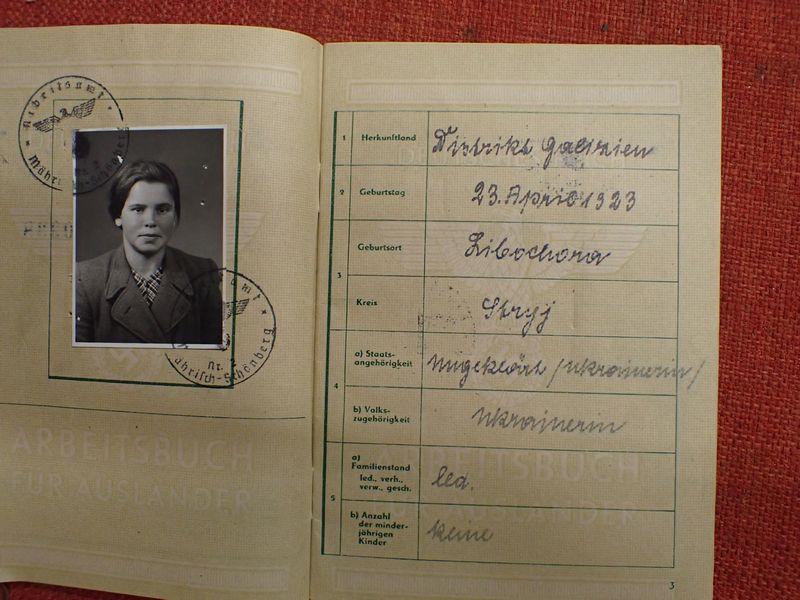 Arbeitsamt
Mähri
Nr. 2
ährisch-Schönberg
ARBEITSBUCH
FÜR AUSLÄNDER
1 Herkunftland Distrikt Galizien
2 Geburtstag 23. April 1923
3 Geburtsort Libochora
Kreis Stryj
4 a) Staats-
angehörigkeit Ungeklärt / Ukrainerin /
b) Volks-
zugehörigkeit Ukrainerin
5 a)
Familienstand
led., verh.,
verw., gesch. led.
b) Anzahl
der minder-
jährigen
Kinder keine
ARBEITSBUCH
3